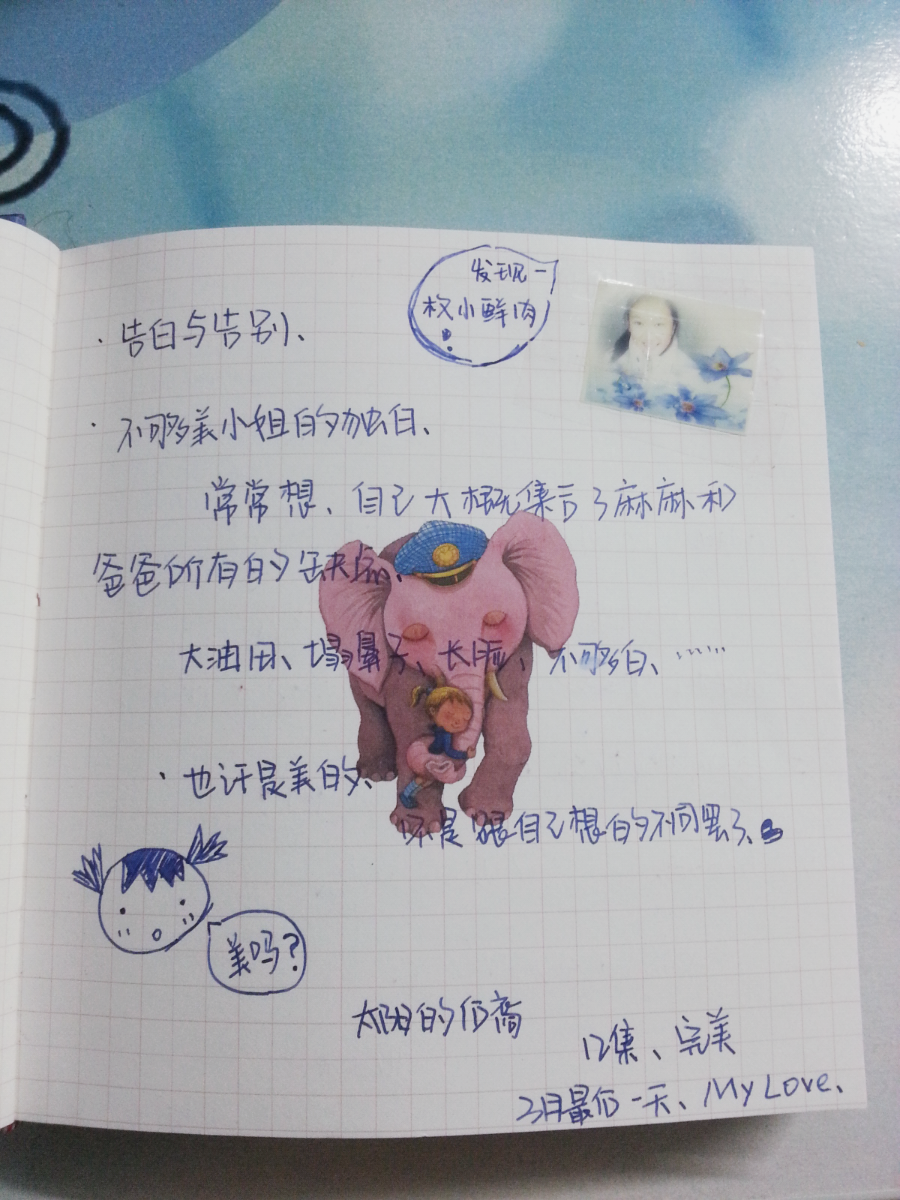 发现一
枚小鲜肉
·告白与告别、
·不够美小姐的独白、
常常想、自己大概集合了麻麻和
爸爸所有的缺点、
大油田、塌鼻子、长脸、不够白、……
·也许是美的、
只是跟自己想的不同罢了、
美吗?
太阳的后裔
12集、完美
3月最后一天、My Love、